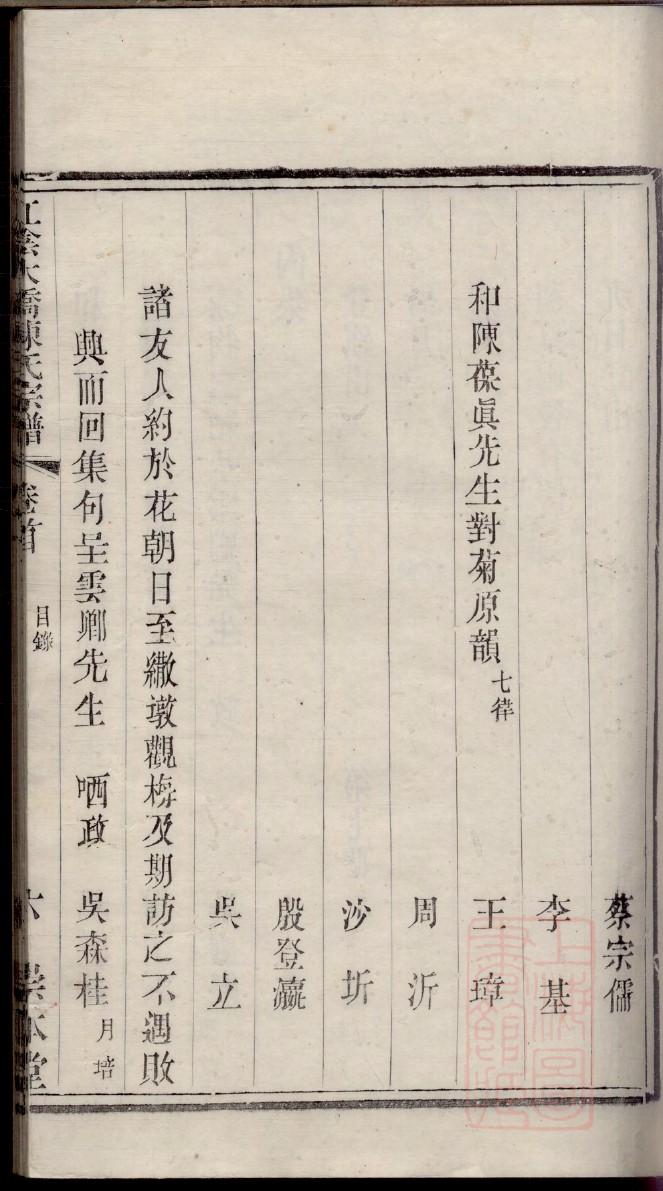 蔡宗儒
李基
和陳葆眞先生對菊原韻 七律 王璋
周沂
沙圻
殷登瀛
吳立
諸友人約於花朝日至繖墩觀梅及期訪之不遇敗
興而回集句呈雲鄉先生 哂政 吳森桂 月培
江陰大橋陳氏宗譜 卷首 目錄 六 崇本堂
上海圖書館藏